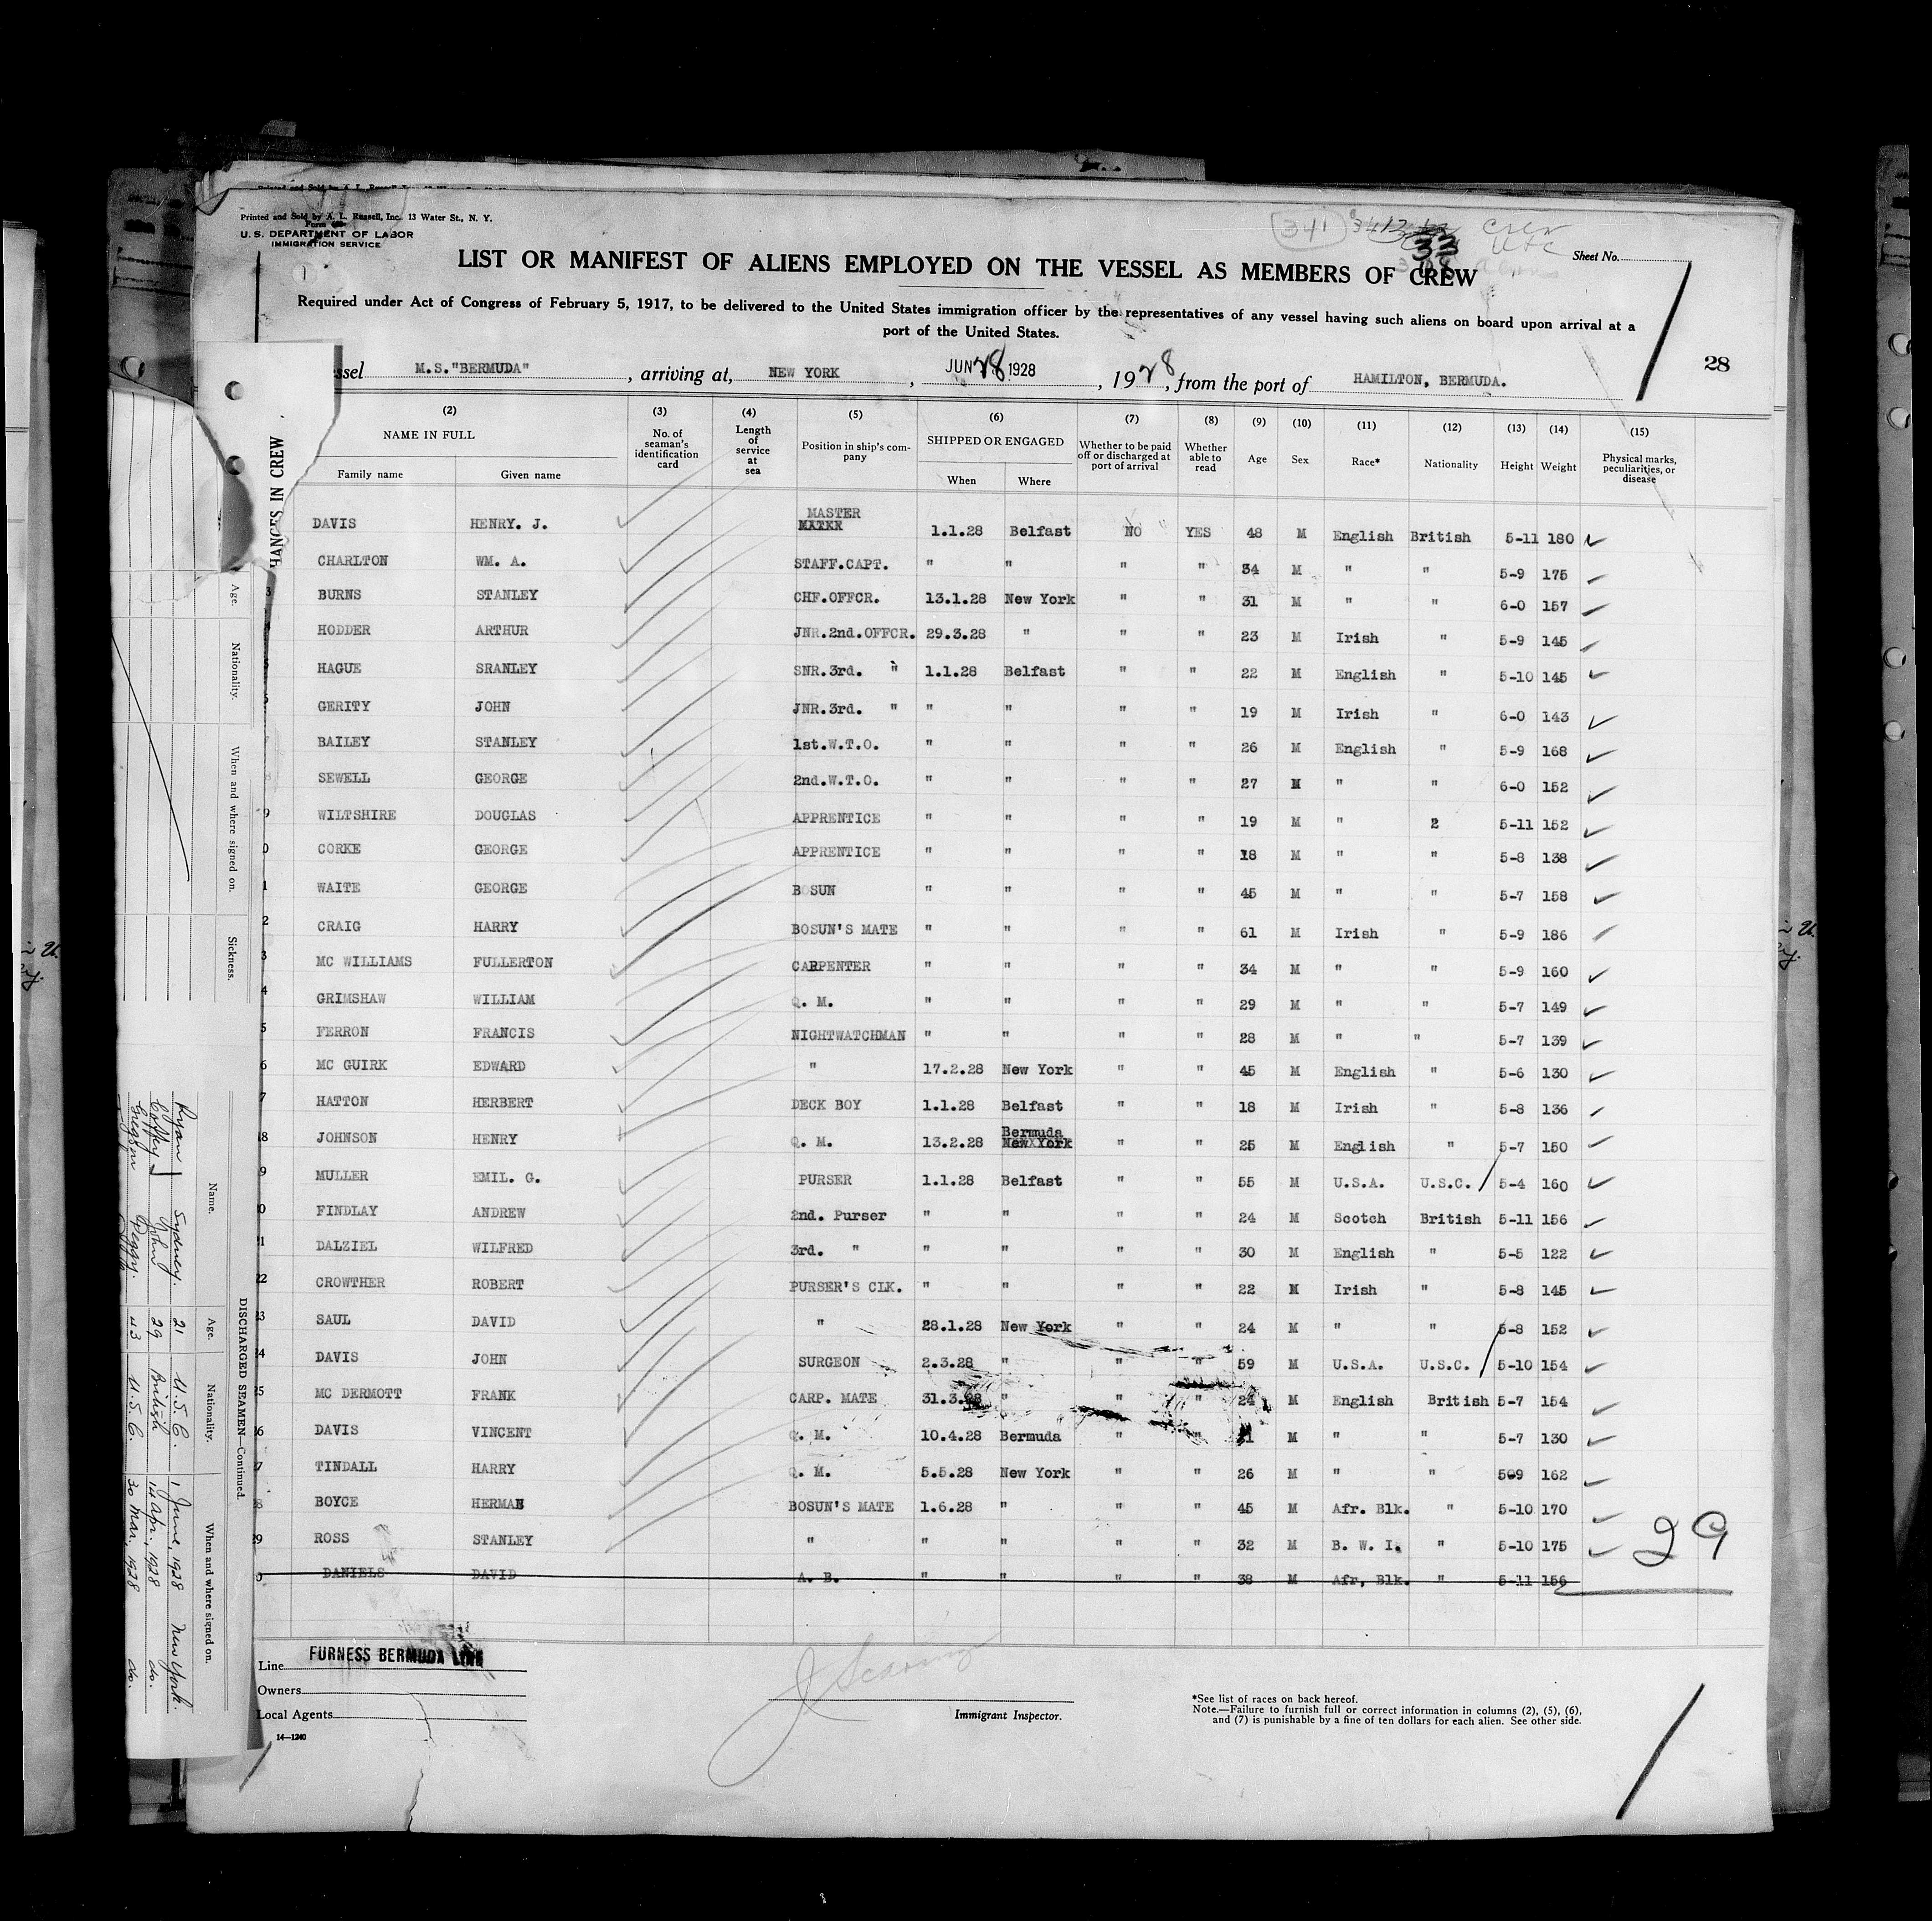 Printed and Sold by A. L. Russell, Inc. 13 Water St., N. Y.
U. S. DEPARTMENT OF LABOR
IMMIGRATION SERVICE
341
Sheet No.
LIST OR MANIFEST OF ALIENS EMPLOYED ON THE VESSEL AS MEMBERS OF CREW
Required under Act of Congress of February 5, 1917, to be delivered to the United States immigration officer by the representatives of any vessel having such aliens on board upon arrival at a
port of the United States.
ssel M.S."BERMUDA" , arriving at, NEW YORK , JUN 28 1928 , 1928, from the port of HAMILTON, BERMUDA.
28
(2) (3) (4) (5) (6) (7) (8) (9) (10) (11) (12) (13) (14) (15)
NAME IN FULL No. of seaman's identification card Length of service at sea Position in ship's company SHIPPED OR ENGAGED Whether to be paid off or discharged at port of arrival Whether able to read Age Sex Race* Nationality Height Weight Physical marks, peculiarities, or disease
Family name Given name When Where
DAVIS HENRY. J. MASTER 1.1.28 Belfast NO YES 48 M English British 5-11 180
CHARLTON WM. A. STAFF.CAPT. " " " " 34 M " " 5-9 175
3 BURNS STANLEY CHF.OFFCR. 13.1.28 New York " " 31 M " " 6-0 157
HODDER ARTHUR JNR.2nd.OFFCR. 29.3.28 " " " 23 M Irish " 5-9 145
5 HAGUE SRANLEY SNR.3rd. " 1.1.28 Belfast " " 22 M English " 5-10 145
GERITY JOHN JNR.3rd. " " " " " 19 M Irish " 6-0 143
7 BAILEY STANLEY 1st.W.T.O. " " " " 26 M English " 5-9 168
8 SEWELL GEORGE 2nd.W.T.O. " " " " 27 M " " 6-0 152
9 WILTSHIRE DOUGLAS APPRENTICE " " " " 19 M " 2 5-11 152
0 CORKE GEORGE APPRENTICE " " " " 18 M " " 5-8 138
1 WAITE GEORGE BOSUN " " " " 45 M " " 5-7 158
2 CRAIG HARRY BOSUN'S MATE " " " " 61 M Irish " 5-9 186
3 MC WILLIAMS FULLERTON CARPENTER " " " " 34 M " " 5-9 160
4 GRIMSHAW WILLIAM Q. M. " " " " 29 M " " 5-7 149
5 FERRON FRANCIS NIGHTWATCHMAN " " " " 28 M " " 5-7 139
6 MC GUIRK EDWARD " 17.2.28 New York " " 45 M English " 5-6 130
7 HATTON HERBERT DECK BOY 1.1.28 Belfast " " 18 M Irish " 5-8 136
18 JOHNSON HENRY Q. M. 13.2.28 Bermuda New York " " 25 M English " 5-7 150
9 MULLER EMIL. G. PURSER 1.1.28 Belfast " " 55 M U.S.A. U.S.C. 5-4 160
0 FINDLAY ANDREW 2nd. Purser " " " " 24 M Scotch British 5-11 156
21 DALZIEL WILFRED 3rd. " " " " " 30 M English " 5-5 122
22 CROWTHER ROBERT PURSER'S CLK. " " " " 22 M Irish " 5-8 145
23 SAUL DAVID " 28.1.28 New York " " 24 M " " 5-8 152
24 DAVIS JOHN SURGEON 2.3.28 " " " 59 M U.S.A. U.S.C. 5-10 154
25 MC DERMOTT FRANK CARP. MATE 31.3.28 " " " 24 M English British 5-7 154
26 DAVIS VINCENT Q. M. 10.4.28 Bermuda " " M " " 5-7 130
27 TINDALL HARRY Q. M. 5.5.28 New York " " 26 M " " 509 162
28 BOYCE HERMAN BOSUN'S MATE 1.6.28 " " " 45 M Afr. Blk. " 5-10 170
29 ROSS STANLEY " " " " " 32 M B. W. I. " 5-10 175
0 DANIELS DAVID A. B. " " " " 38 M Afr, Blk. " 5-11 156
29
Line FURNESS BERMUDA LINE
Owners
Local Agents
14—1240
Immigrant Inspector.
*See list of races on back hereof.
Note.—Failure to furnish full or correct information in columns (2), (5), (6),
and (7) is punishable by a fine of ten dollars for each alien. See other side.
HANGES IN CREW
Age. Nationality. When and where signed on. Sickness.
DISCHARGED SEAMEN—Continued.
Name. Age. Nationality. When and where signed on.
Ryan Sydney. 21 U.S.C. 1 June, 1928 New York.
Coffey John 29 British 14 Apr., 1928 do.
Gregson 43 U.S.C. 30 Mar., 1928 do.